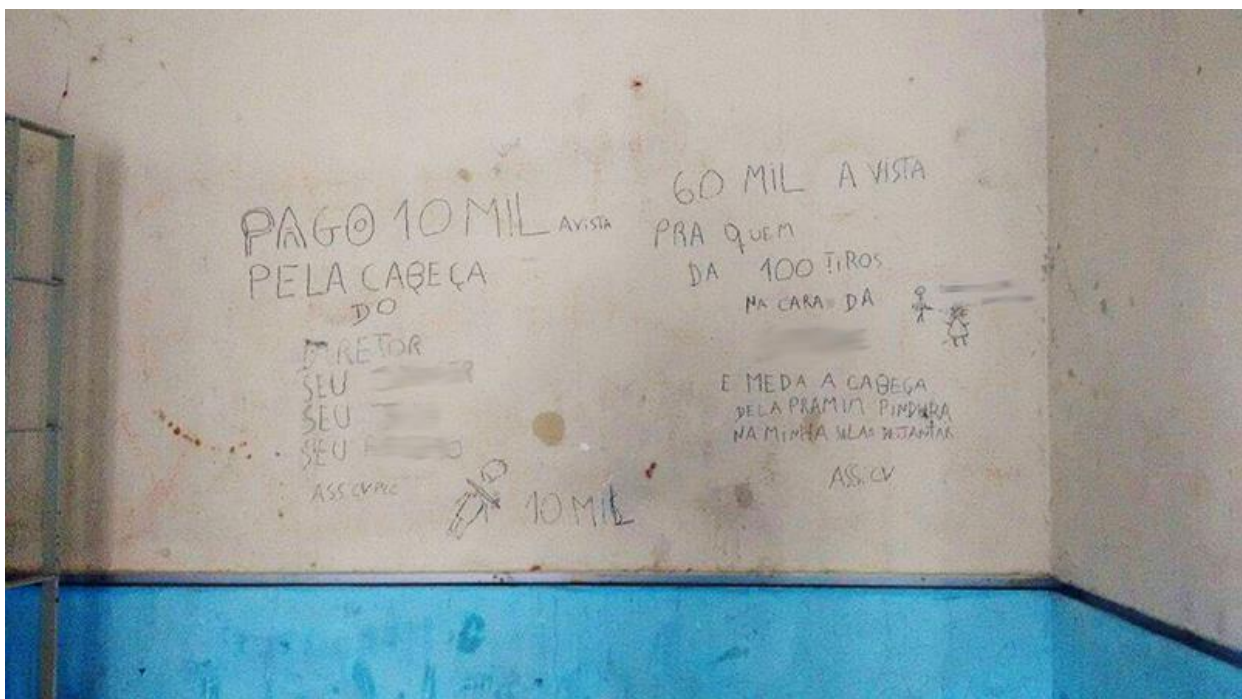 PAGO 10 MIL AVISTA
PELA CABEÇA
DO
DIRETOR
SEU
SEU
SEU
ASS. CV PCC
10 MIL
60 MIL A VISTA
PRA QUEM
DA 100 TIROS
NA CARA DA
E MEDA A CABEÇA
DELA PRAMIM PINDURA
NA MINHA SALAS DEJANTAR
ASS. CV